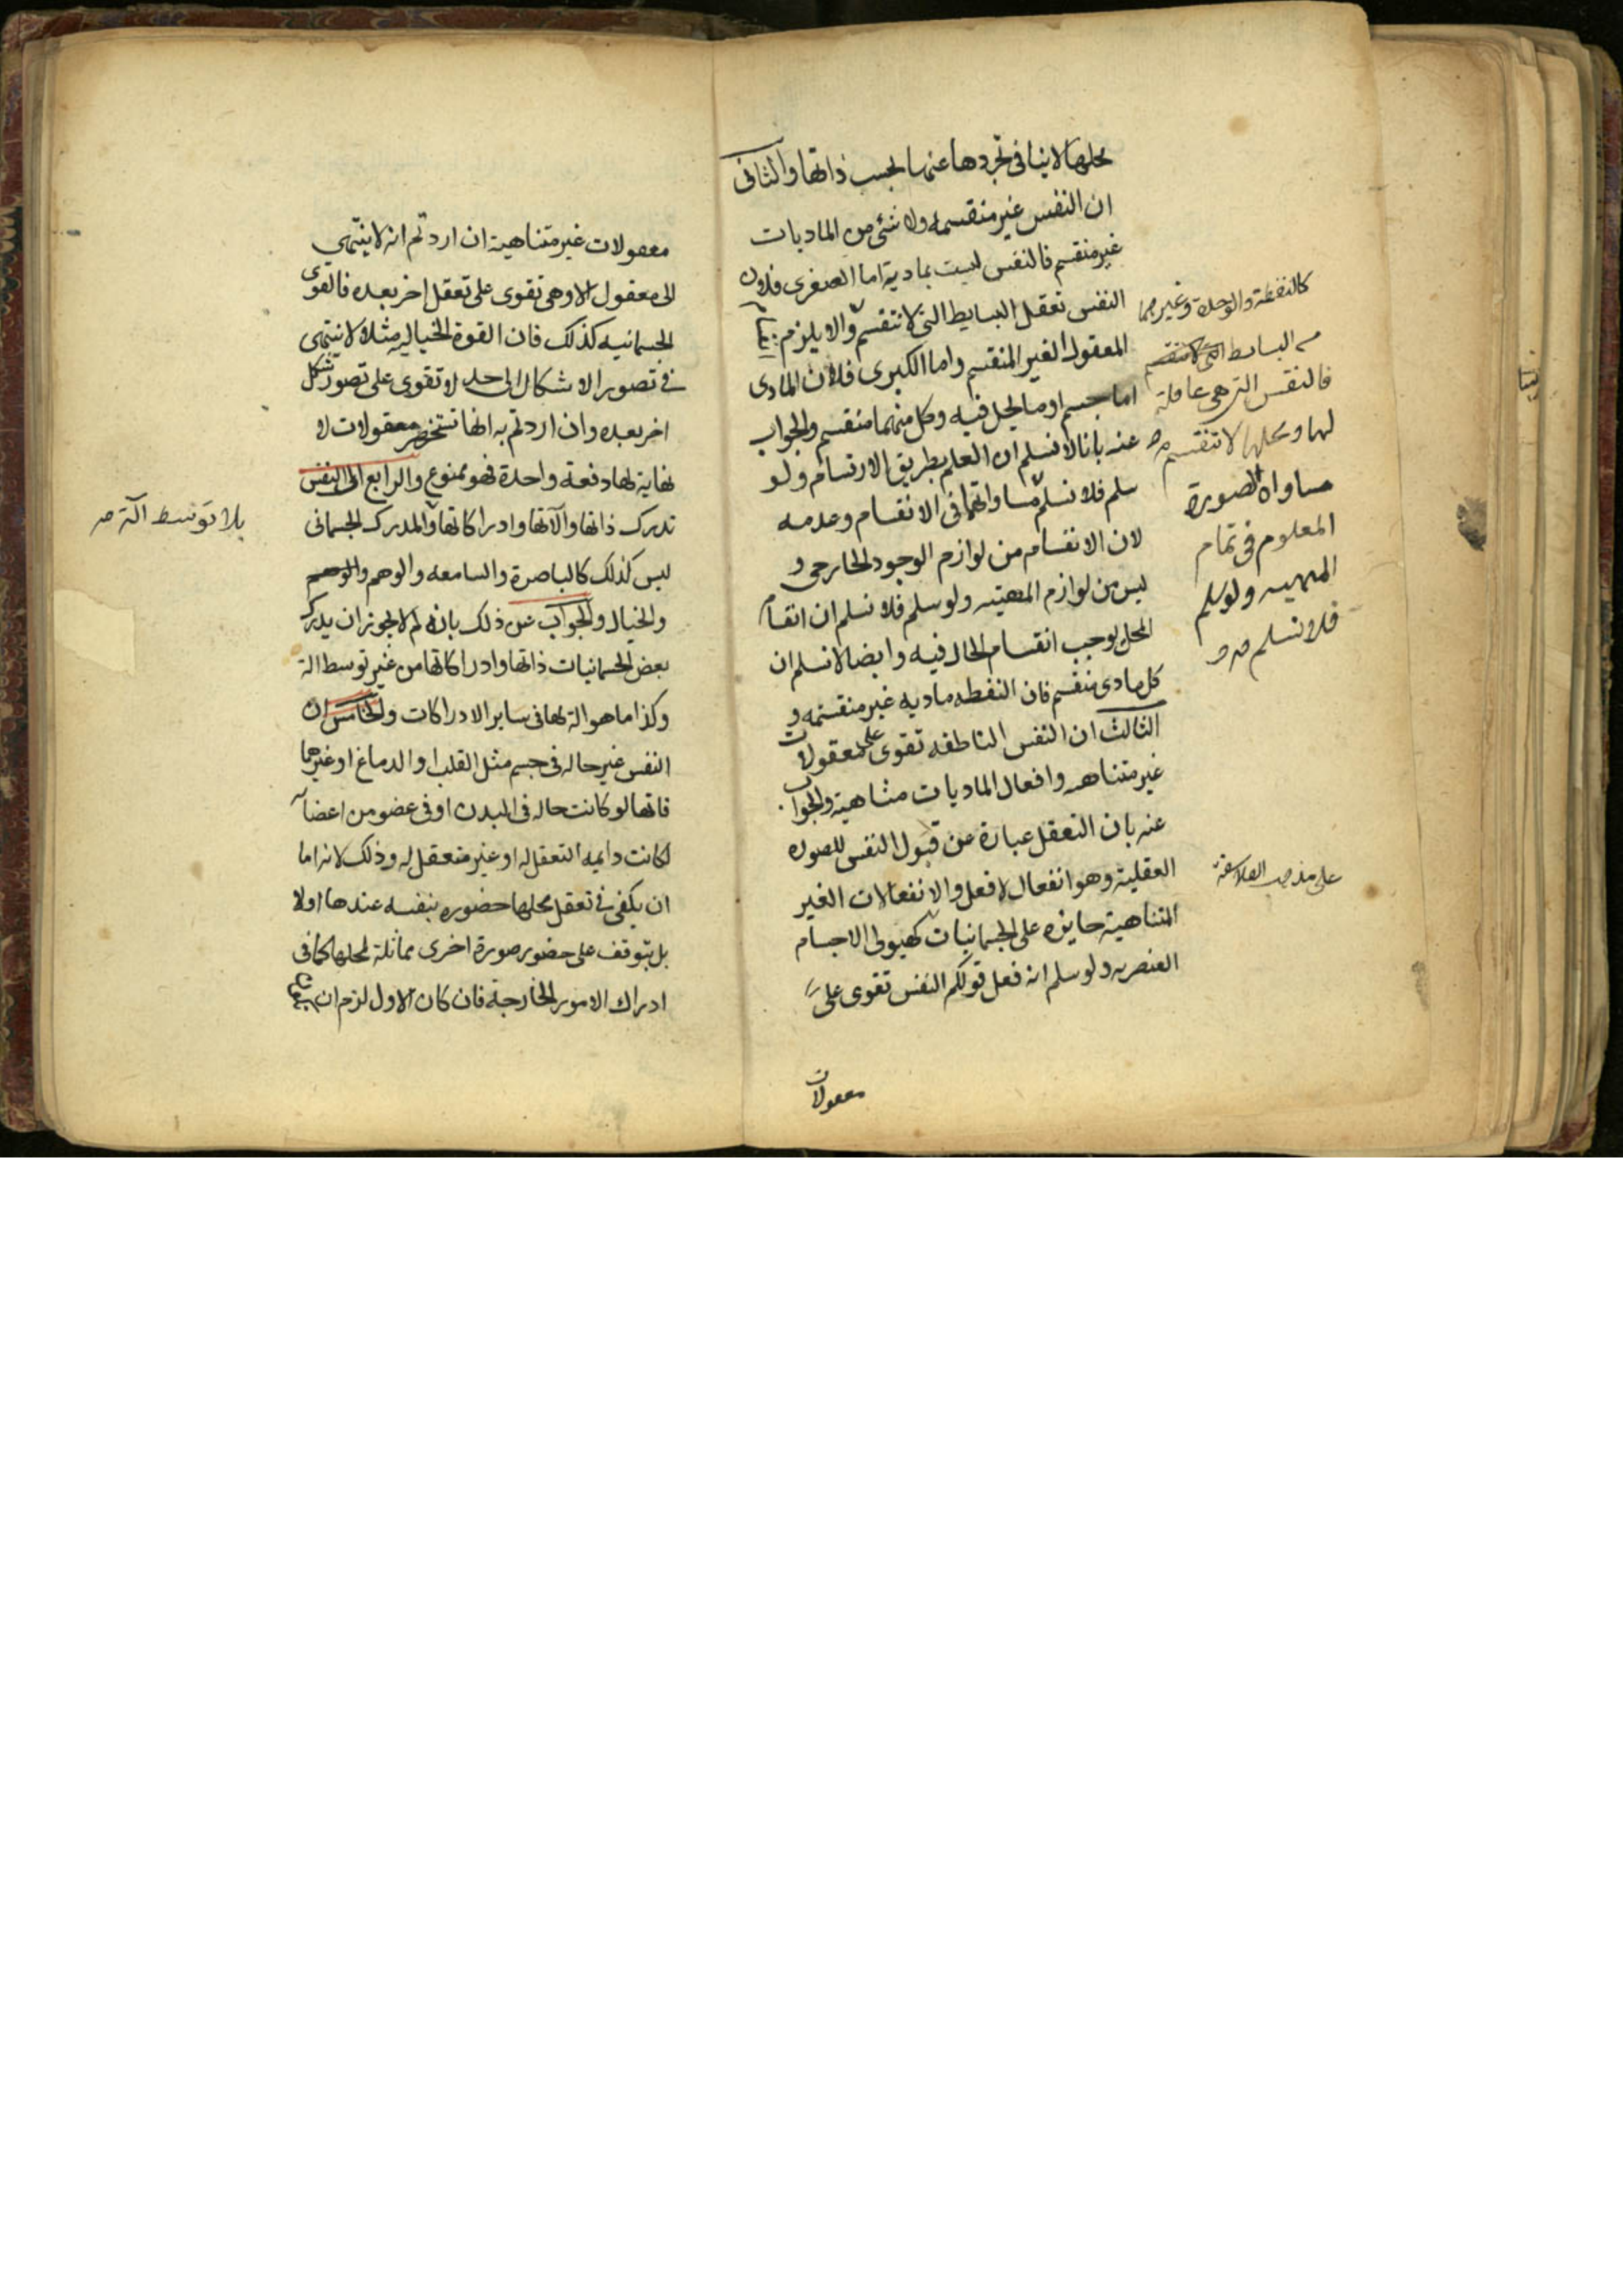 محلها لا ينافى تجردها عنها بحسب ذاتها والثانى
ان النفس غير منقسمه ولا شئ من الماديات
غير منقسم فالنفس ليست بمادية اما الصغرى فلان
النفس تعقل البسايط التى لا تنقسم والا يلزم
المعقول الغير المنقسم واما الكبرى فلان المادى
اما جسم او ما يحل فيه وكل منهما منقسم والجواب
عنه بانا لا نسلم ان العلم بطريق الارتسام ولو
سلم فلا نسلم مساواتهما فى الانقسام وعدمه
لان الانقسام من لوازم الوجود الخارجى و
ليس من لوازم المهيه ولو سلم فلا نسلم ان انقسام
المحل يوجب انقسام الحال فيه وايضا لا نسلم ان
كل مادى منقسم فان النقطه ماديه غير منقسمه و
الثالث ان النفس الناطقه تقوى على معقولات
غير متناهيه وافعال الماديات متناهية والجواب
عنه بان التعقل عبارة عن قبول النفس للصوره
العقلية وهو انفعال لا فعل والانفعالات الغير
المتناهية جايزه على الجسمانيات كهيولى الاجسام
العنصريه ولو سلم انه فعل قولكم النفس تقوى على
معقولات
كالنقطة والوحدة وغيرهما
من البسائط التى لا تنقسم
فالنفس التى هى عاقلة
لها ومحلها لا تنقسم صح
مساواة الصورة
المعلوم فى تمام
المهيه ولو سلم
فلا نسلم صح
على مذهب الفلاسفة
معقولات غير متناهية ان اردتم انه لا ينتهى
الى معقول الا وهى تقوى على تعقل اخر بعده فالقوى
الجسمانيه كذلك فان القوة الخياليه مثلا لا ينتهى
فى تصور الاشكال الى حد لا تقوى على تصور شكل
اخر بعده وان اردتم به انها تستحضر معقولات لا
نهاية لها دفعة واحدة فهو ممنوع والرابع ان النفس
تدرك ذاتها وآلاتها وادراكاتها والمدرك الجسمانى
ليس كذلك كالباصرة والسامعه والوهم والوهم
والخيال والجواب عن ذلك بانه لم لا يجوز ان يدرك
بعض الجسمانيات ذاتها وادراكاتها من غير توسط الة
وكذا ما هو الة لها فى ساير الادراكات والخامس ان
النفس غير حاله فى جسم مثل القلب او الدماغ او غيرهما
فانها لو كانت حاله فى البدن او فى عضو من اعضائه
لكانت دايمه التعقل له او غير متعقل له وذلك لانه اما
ان يكفى فى تعقل محلها حضوره بنفسه عندها اولا
بل يتوقف على حضور صورة اخرى مماثلة لمحلها كما فى
ادراك الامور الخارجة فان كان الاول لزم ان
بلا توسط آلة صح